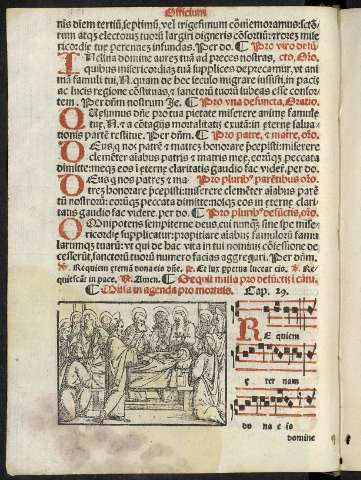 Officium
nis diem tertiū, septimū, vel trigesimum cōmemoramus: sctō‐
rum atqȝ electorum tuorū largiri digneris cōsortiū: ⁊ rorē miseri
cordie tue perennē infundas. Per do. ¶ Pro viro defū.
Inclina domine aurem tuā ad preces nostras, cto, Oro.
quibus misericordiā tuā supplices deprecamur, vt ani
mā famuli tui, N. quam de hoc seculo migrare iussisti, in pacis
ac lucis regione cōstituas, ⁊ sanctorū tuorū iubeas esse consor‐
tem. Per dn̄m nostrum Je. ¶ Pro vna defuncta, Oratio.
Quesumus dn̄e pro tua pietate miserere anime famule
tue, N. ⁊ a cōtagijs mortalitatis exutā: in eterne salua‐
tionis partē restitue. Per dn̄m. ¶ Pro patre, ⁊ matre, oro.
Deus, q nos patrē ⁊ matrē honorare p̄cepisti: miserere
clemēter aīabus patris ⁊ matris mee, eorūqȝ peccata
dimitte: meqȝ eos in eterne claritatis gaudio fac vidē. per do.
Deus q nos patrez ⁊ ma ¶ Pro pluribꝰ parentibus, oro.
trez honorare p̄cepisti: miserere clemēter aīabus parē
tū nostrorū: eorūqȝ peccata dimitte: nosqȝ eos in eterne clari‐
tatis gaudio fac videre. per do. ¶ Pro pluribꝰ defūctis, oro.
Omnipotens sempiterne deus, cui nunqȝ sine spe mise‐
ricordie supplicatur: propitiare aīabus famulorū famu
larumqȝ tuarū: vt qui de hac vita in tui nominis cōfessione de
cesserūt, sanctorū tuorū numero facias aggregari. Per dn̄m.
℣. Requiem eternā dona eis dn̄e. ℟. Et lux ppetua luceat eis. ℣. Re‐
quiescāt in pace. ℟. Amen. ¶ Sequit missa pro defūctis i cātu.
¶ Missa in agenda pro mortuis. Cap. 29.
Re quiem
e ter nam
do na e is
domine